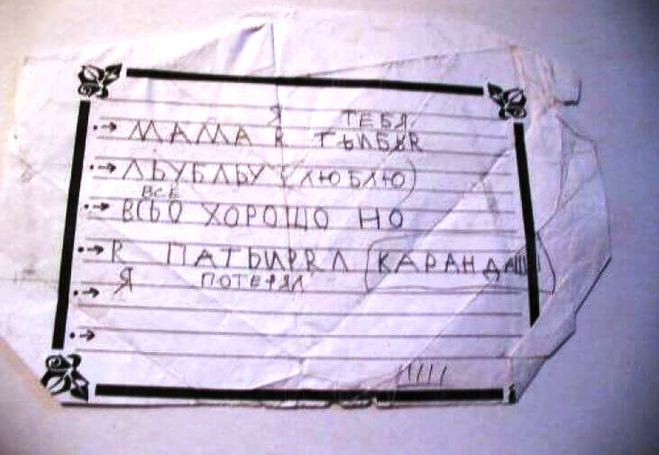 Я ТЕБЯ
МАМА R ТЬИБЬR
ЛЬУБЛЬУ (ЛЮБЛЮ)
ВСЕ
ВСЬО ХОРОШО НО
R ПАТЬИРRЛ (КАРАНДАШ)
Я ПОТЕРЯЛ